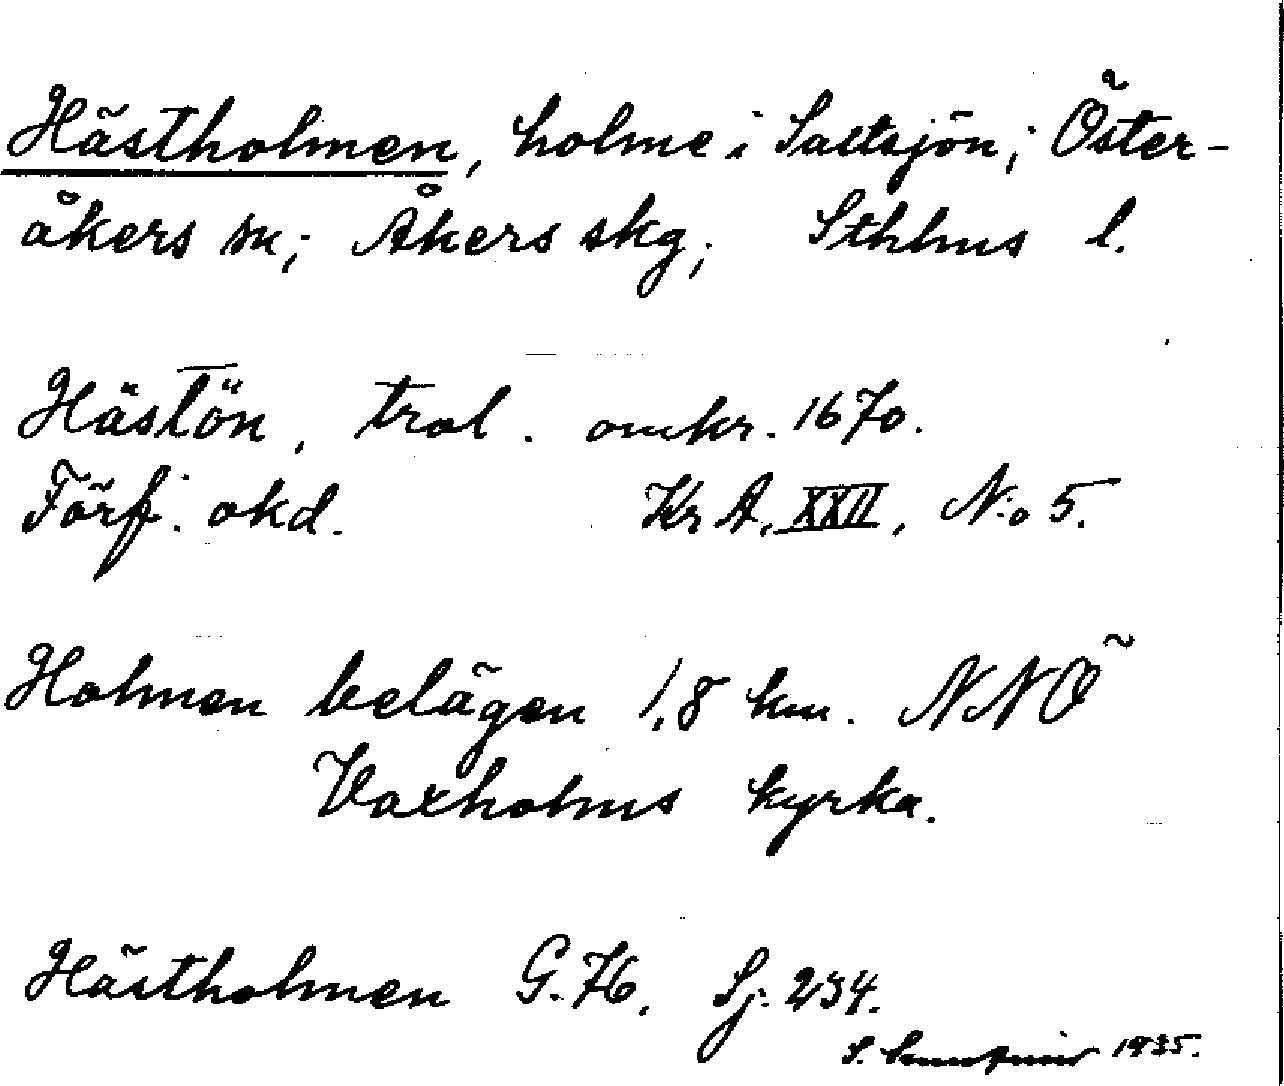 Hästholmen, holme i Saltsjön; Öster-
åkers sn; Åkers skg; Sthlms l.
Hästön, trol. omkr. 1670.
Förf. okd. Kr A. XXII, N:o 5.
Holmen belägen 1,8 km. NNÖ
Vaxholms kyrka.
Hästholmen G. 76. Sj. 234.
S. 1935.